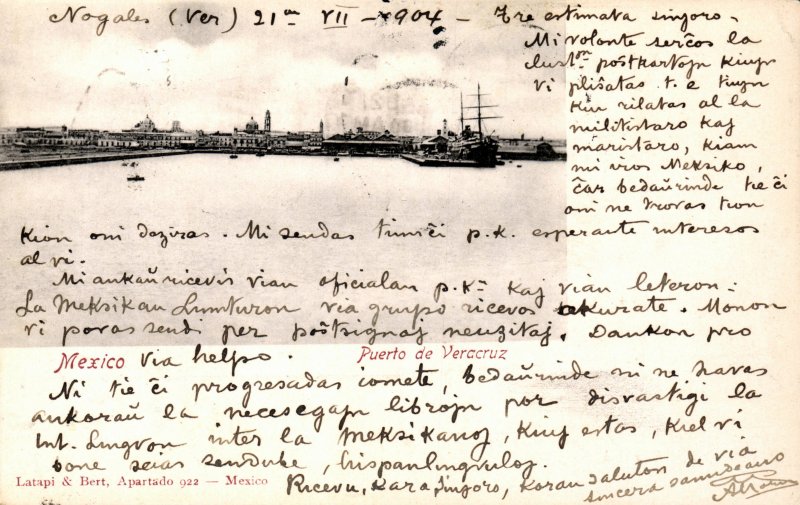 Nogales (Ver) 21an VII - 904 - Tre estimata sinjoro.
Mi volonte serĉos la
ilustn poŝtkartojn kiujn
vi pliŝatas t. e tiujn
kiu rilatas al la
militistaro kaj
maristaro, kiam
mi iros Meksiko,
ĉar bedaŭrinde tie ĉi
oni ne trovas tion
kion oni deziras. Mi sendas tiun ĉi p.k. esperante interesos
al vi.
Mi ankaŭ ricevis vian oficialan p.kn kaj vian leteron:
La Meksikan Lumturon via grupo ricevos akurate. Monon
vi povas sendi per poŝtsignaj neuzitaj. Dankon pro
via helpo.
Mexico Puerto de Veracruz
Ni tie ĉi progresadas iomete, bedaŭrinde ni ne havas
ankoraŭ la necesegajn librojn por disvastigi la
Int. Lingvon inter la Meksikanoj, kiuj estas, kiel vi
bone scias sendube, hispanlingvuloj.
Ricevu, kara sinjoro, koran saluton de via
sincera samideano
Latapi & Bert, Apartado 922 — Mexico